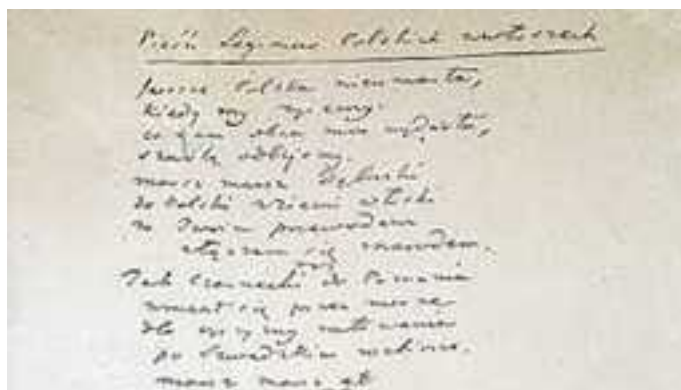 Pieśń Legionów Polskich we Włoszech
Jeszcze Polska nie umarła,
kiedy my żyjemy.
co nam obca moc wydarła,
szablą odbijemy.
marsz marsz Dąbrowski
do Polski z ziemi włoski
za Twoim przewodem
złączem się z narodem.
Jak Czarnecki do Poznania
wracał się przez morze
dla ojczyzny ratowania
po Szwedzkim rozbiorze.
marsz marsz